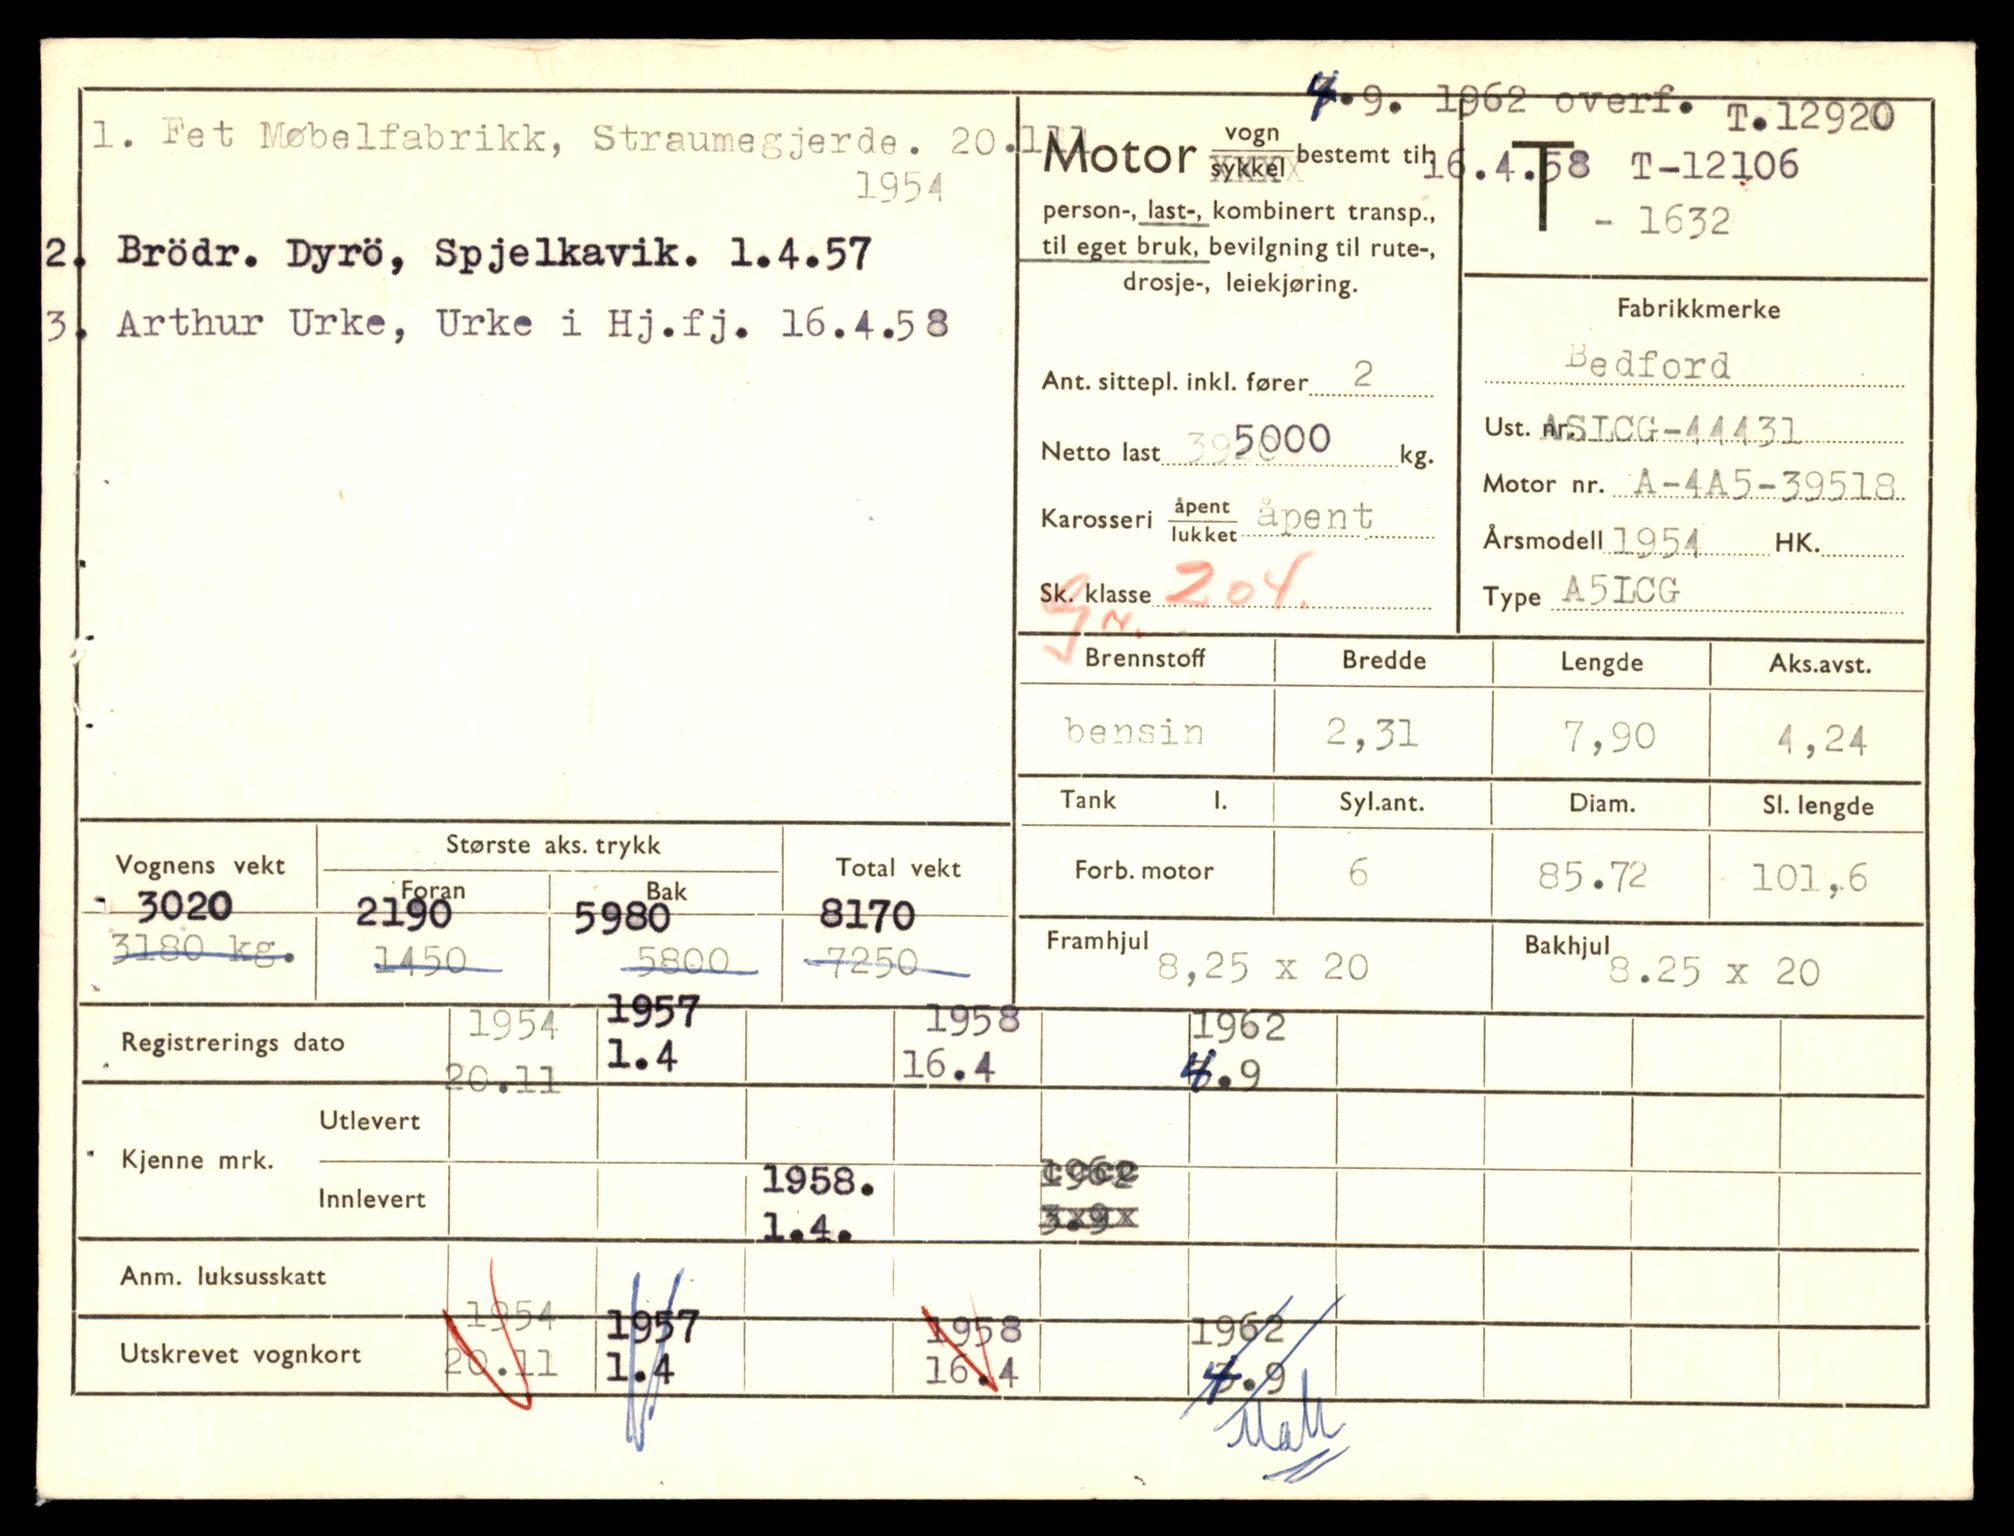 4.9. 1962 overf. T.12920
1. Fet Møbelfabrikk, Straumegjerde. 20.111
1954
2. Brödr. Dyrö, Spjelkavik. 1.4.57
3. Arthur Urke, Urke i Hj.fj. 16.4.58
Motor vogn/sykkel bestemt til 16.4.58 T-12106
T - 1632
person-, last-, kombinert transp.,
til eget bruk, bevilgning til rute-,
drosje-, leiekjøring.
Ant. sittepl. inkl. fører 2
Netto last 5000 kg.
Karosseri åpent/lukket åpent
Sk. klasse 204.
Gr.
Fabrikkmerke
Bedford
Ust. nr. ASLCG-44431
Motor nr. A-4A5-39518
Årsmodell 1954 HK.
Type A5LCG
Brennstoff Bredde Lengde Aks.avst.
bensin 2,31 7,90 4,24
Tank l. Syl.ant. Diam. Sl. lengde
Forb. motor 6 85.72 101,6
Framhjul 8,25 x 20 Bakhjul 8.25 x 20
Vognens vekt Største aks. trykk Total vekt
Foran Bak
3020 2190 5980 8170
3180 kg. 1450 5800 7250
1954 1957 1958 1962
Registrerings dato
20.11 1.4 16.4 4.9
Kjenne mrk.
Utlevert
Innlevert
1958. 1962
1.4. 3.9
Anm. luksusskatt
1954 1957 1958 1962
Utskrevet vognkort
20.11 1.4 16.4 4.9